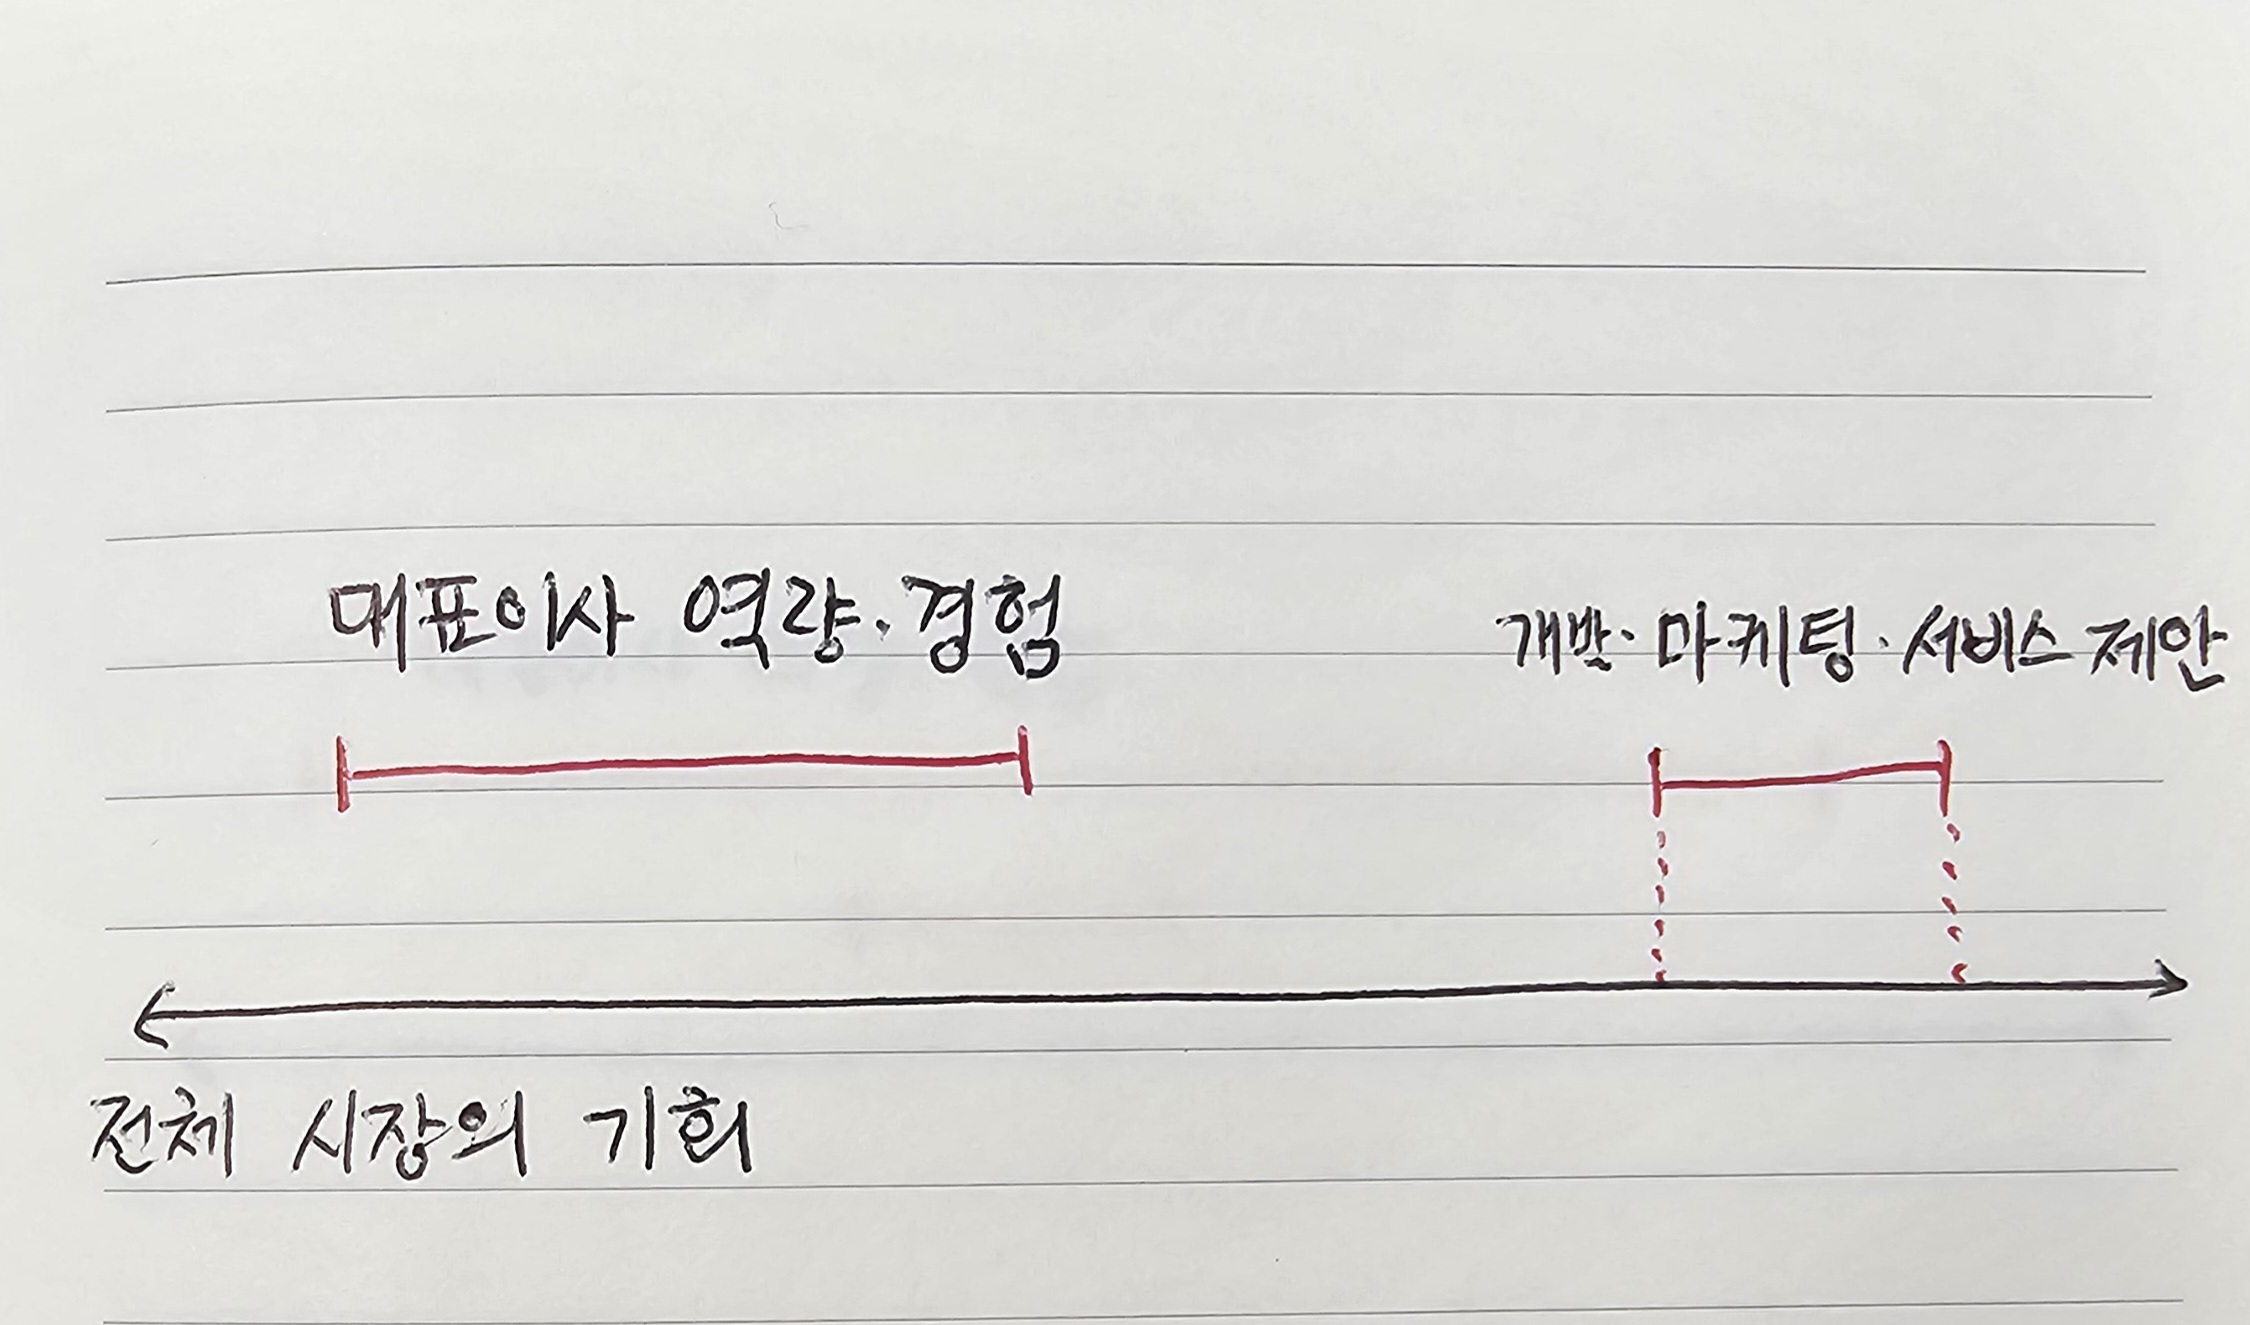 대표이사 역량·경험
개발·마케팅·서비스 제안
전체 시장의 기회